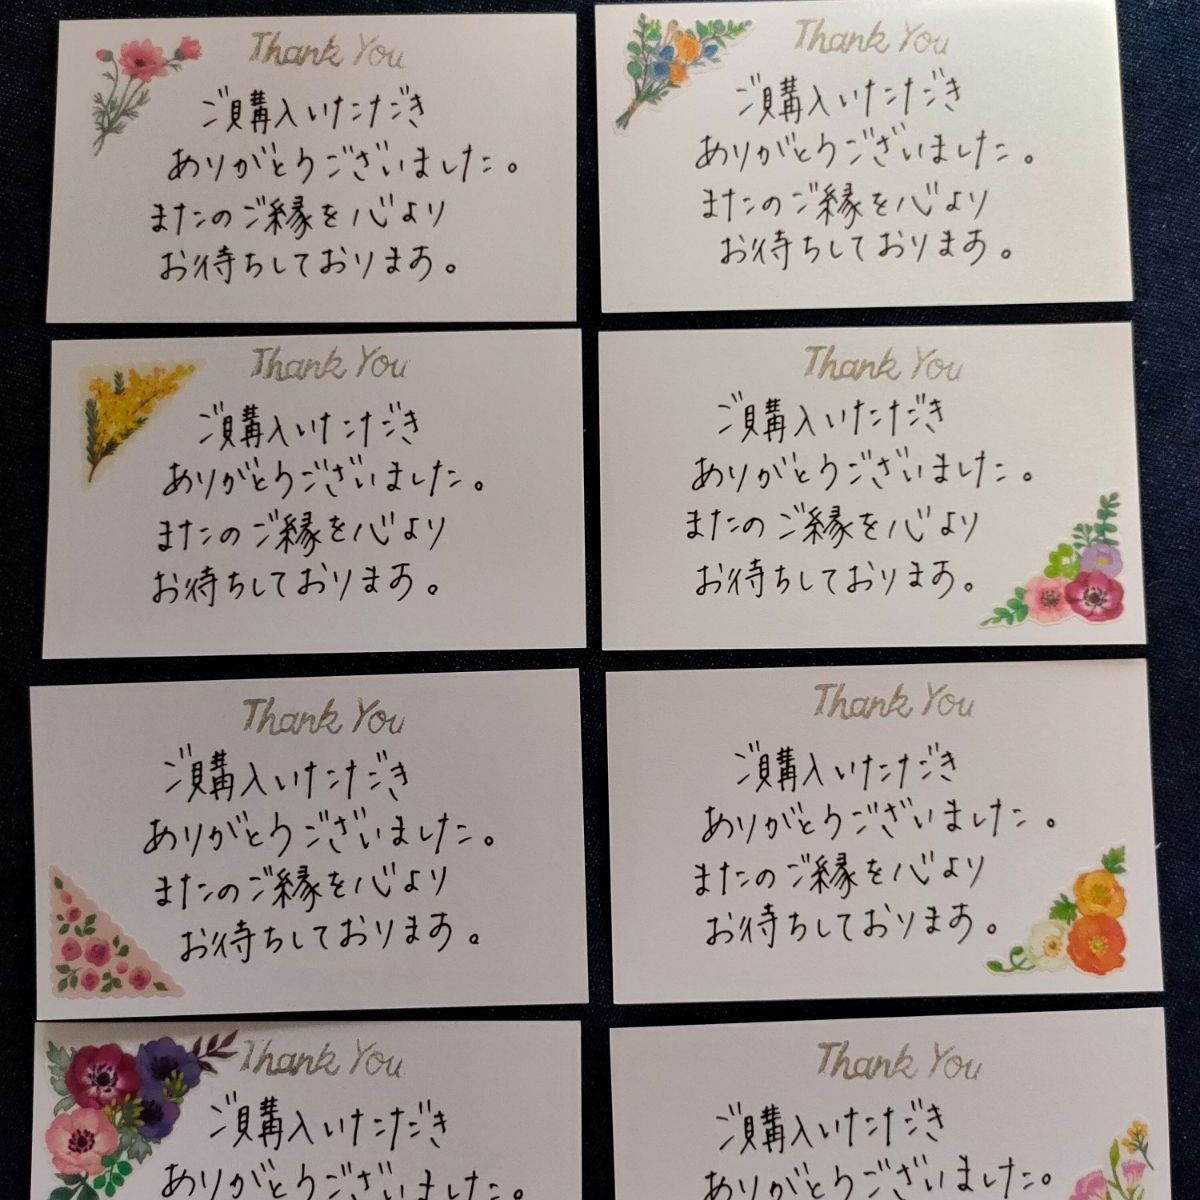 Thank You
ご購入いただき
ありがとうございました。
またのご縁を心より
お待ちしております。
Thank You
ご購入いただき
ありがとうございました。
またのご縁を心より
お待ちしております。
Thank You
ご購入いただき
ありがとうございました。
またのご縁を心より
お待ちしております。
Thank You
ご購入いただき
ありがとうございました。
またのご縁を心より
お待ちしております。
Thank You
ご購入いただき
ありがとうございました。
またのご縁を心より
お待ちしております。
Thank You
ご購入いただき
ありがとうございました。
またのご縁を心より
お待ちしております。
Thank You
ご購入いただき
ありがとうございました。
Thank You
ご購入いただき
ありがとうございました。